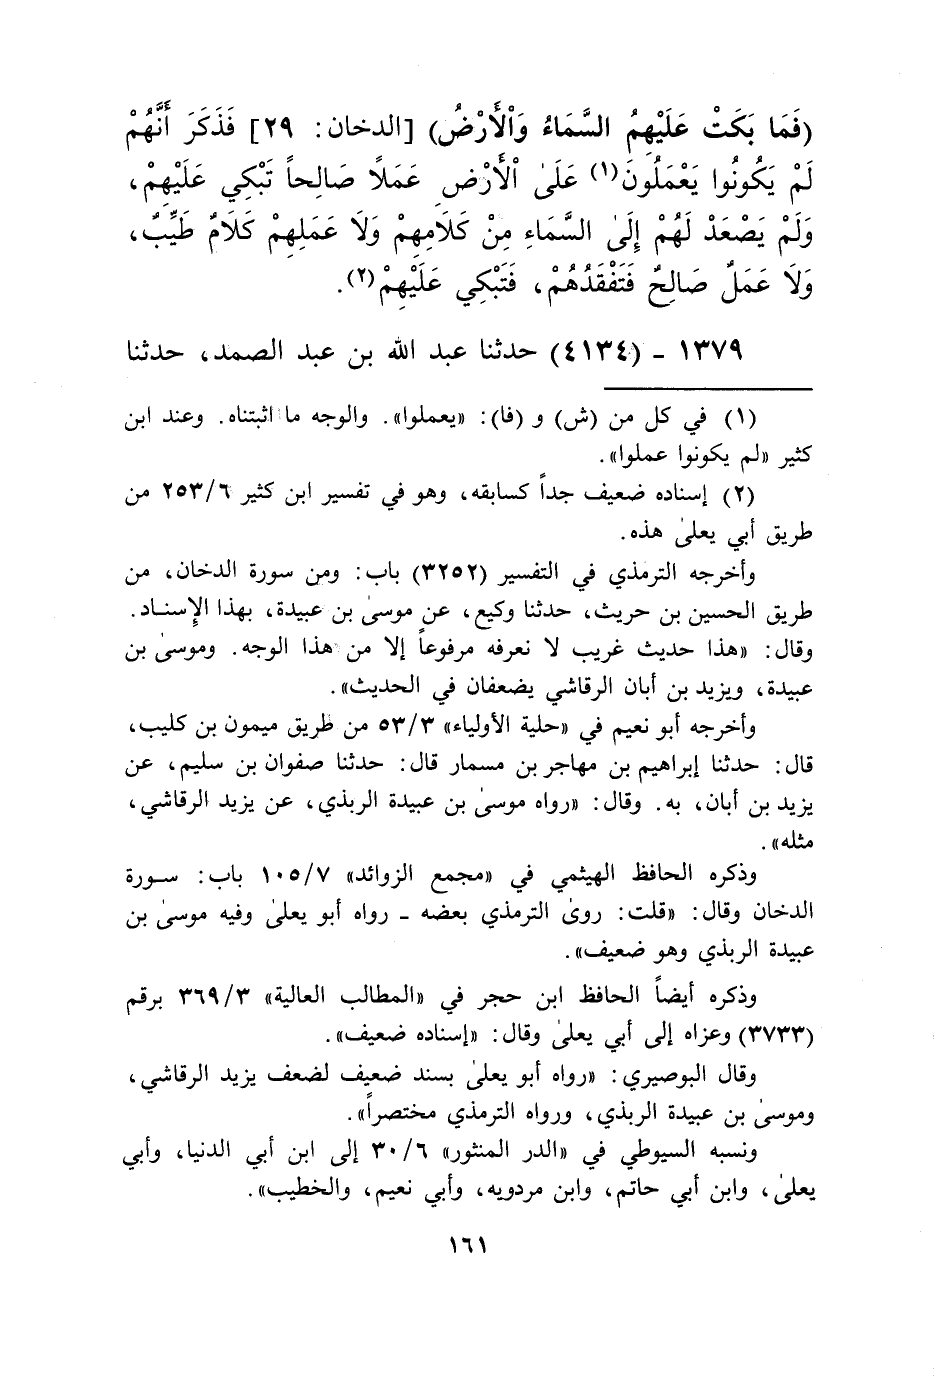 (فَمَا بَكَتْ عَلَيْهِمُ السَّمَاءُ وَالْأَرْضُ) [الدخان: ٢٩] فَذَكَرَ أَنَّهُمْ
لَمْ يَكُونُوا يَعْمَلُونَ(١) عَلَىٰ الْأَرْضِ عَمَلًا صَالِحاً تَبْكِي عَلَيْهِمْ،
وَلَمْ يَصْعَدْ لَهُمْ إِلَىٰ السَّمَاءِ مِنْ كَلَامِهِمْ وَلَا عَمَلِهِمْ كَلَامٌ طَيِّبٌ،
وَلَا عَمَلٌ صَالِحٌ فَتَفْقَدُهُمْ، فَتَبْكِي عَلَيْهِمْ(٢).
١٣٧٩ - (٤١٣٤) حدثنا عبد الله بن عبد الصمد، حدثنا
(١) في كل من (ش) و (فا): «يعملوا». والوجه ما اثبتناه. وعند ابن
كثير «لم يكونوا عملوا».
(٢) إسناده ضعيف جداً كسابقه، وهو في تفسير ابن كثير ٢٥٣/٦ من
طريق أبي يعلىٰ هذه.
وأخرجه الترمذي في التفسير (٣٢٥٢) باب: ومن سورة الدخان، من
طريق الحسين بن حريث، حدثنا وكيع، عن موسىٰ بن عبيدة، بهذا الإسناد.
وقال: «هذا حديث غريب لا نعرفه مرفوعاً إلا من هذا الوجه. وموسىٰ بن
عبيدة، ويزيد بن أبان الرقاشي يضعفان في الحديث».
وأخرجه أبو نعيم في «حلية الأولياء» ٥٣/٣ من طريق ميمون بن كليب،
قال: حدثنا إبراهيم بن مهاجر بن مسمار قال: حدثنا صفوان بن سليم، عن
يزيد بن أبان، به. وقال: «رواه موسىٰ بن عبيدة الربذي، عن يزيد الرقاشي،
مثله».
وذكره الحافظ الهيثمي في «مجمع الزوائد» ١٠٥/٧ باب: سورة
الدخان وقال: «قلت: روىٰ الترمذي بعضه - رواه أبو يعلىٰ وفيه موسىٰ بن
عبيدة الربذي وهو ضعيف».
وذكره أيضاً الحافظ ابن حجر في «المطالب العالية» ٣٦٩/٣ برقم
(٣٧٣٣) وعزاه إلى أبي يعلىٰ وقال: «إسناده ضعيف».
وقال البوصيري: «رواه أبو يعلىٰ بسند ضعيف لضعف يزيد الرقاشي،
وموسىٰ بن عبيدة الربذي، ورواه الترمذي مختصراً».
ونسبه السيوطي في «الدر المنثور» ٣٠/٦ إلى ابن أبي الدنيا، وأبي
يعلىٰ، وابن أبي حاتم، وابن مردويه، وأبي نعيم، والخطيب».
١٦١